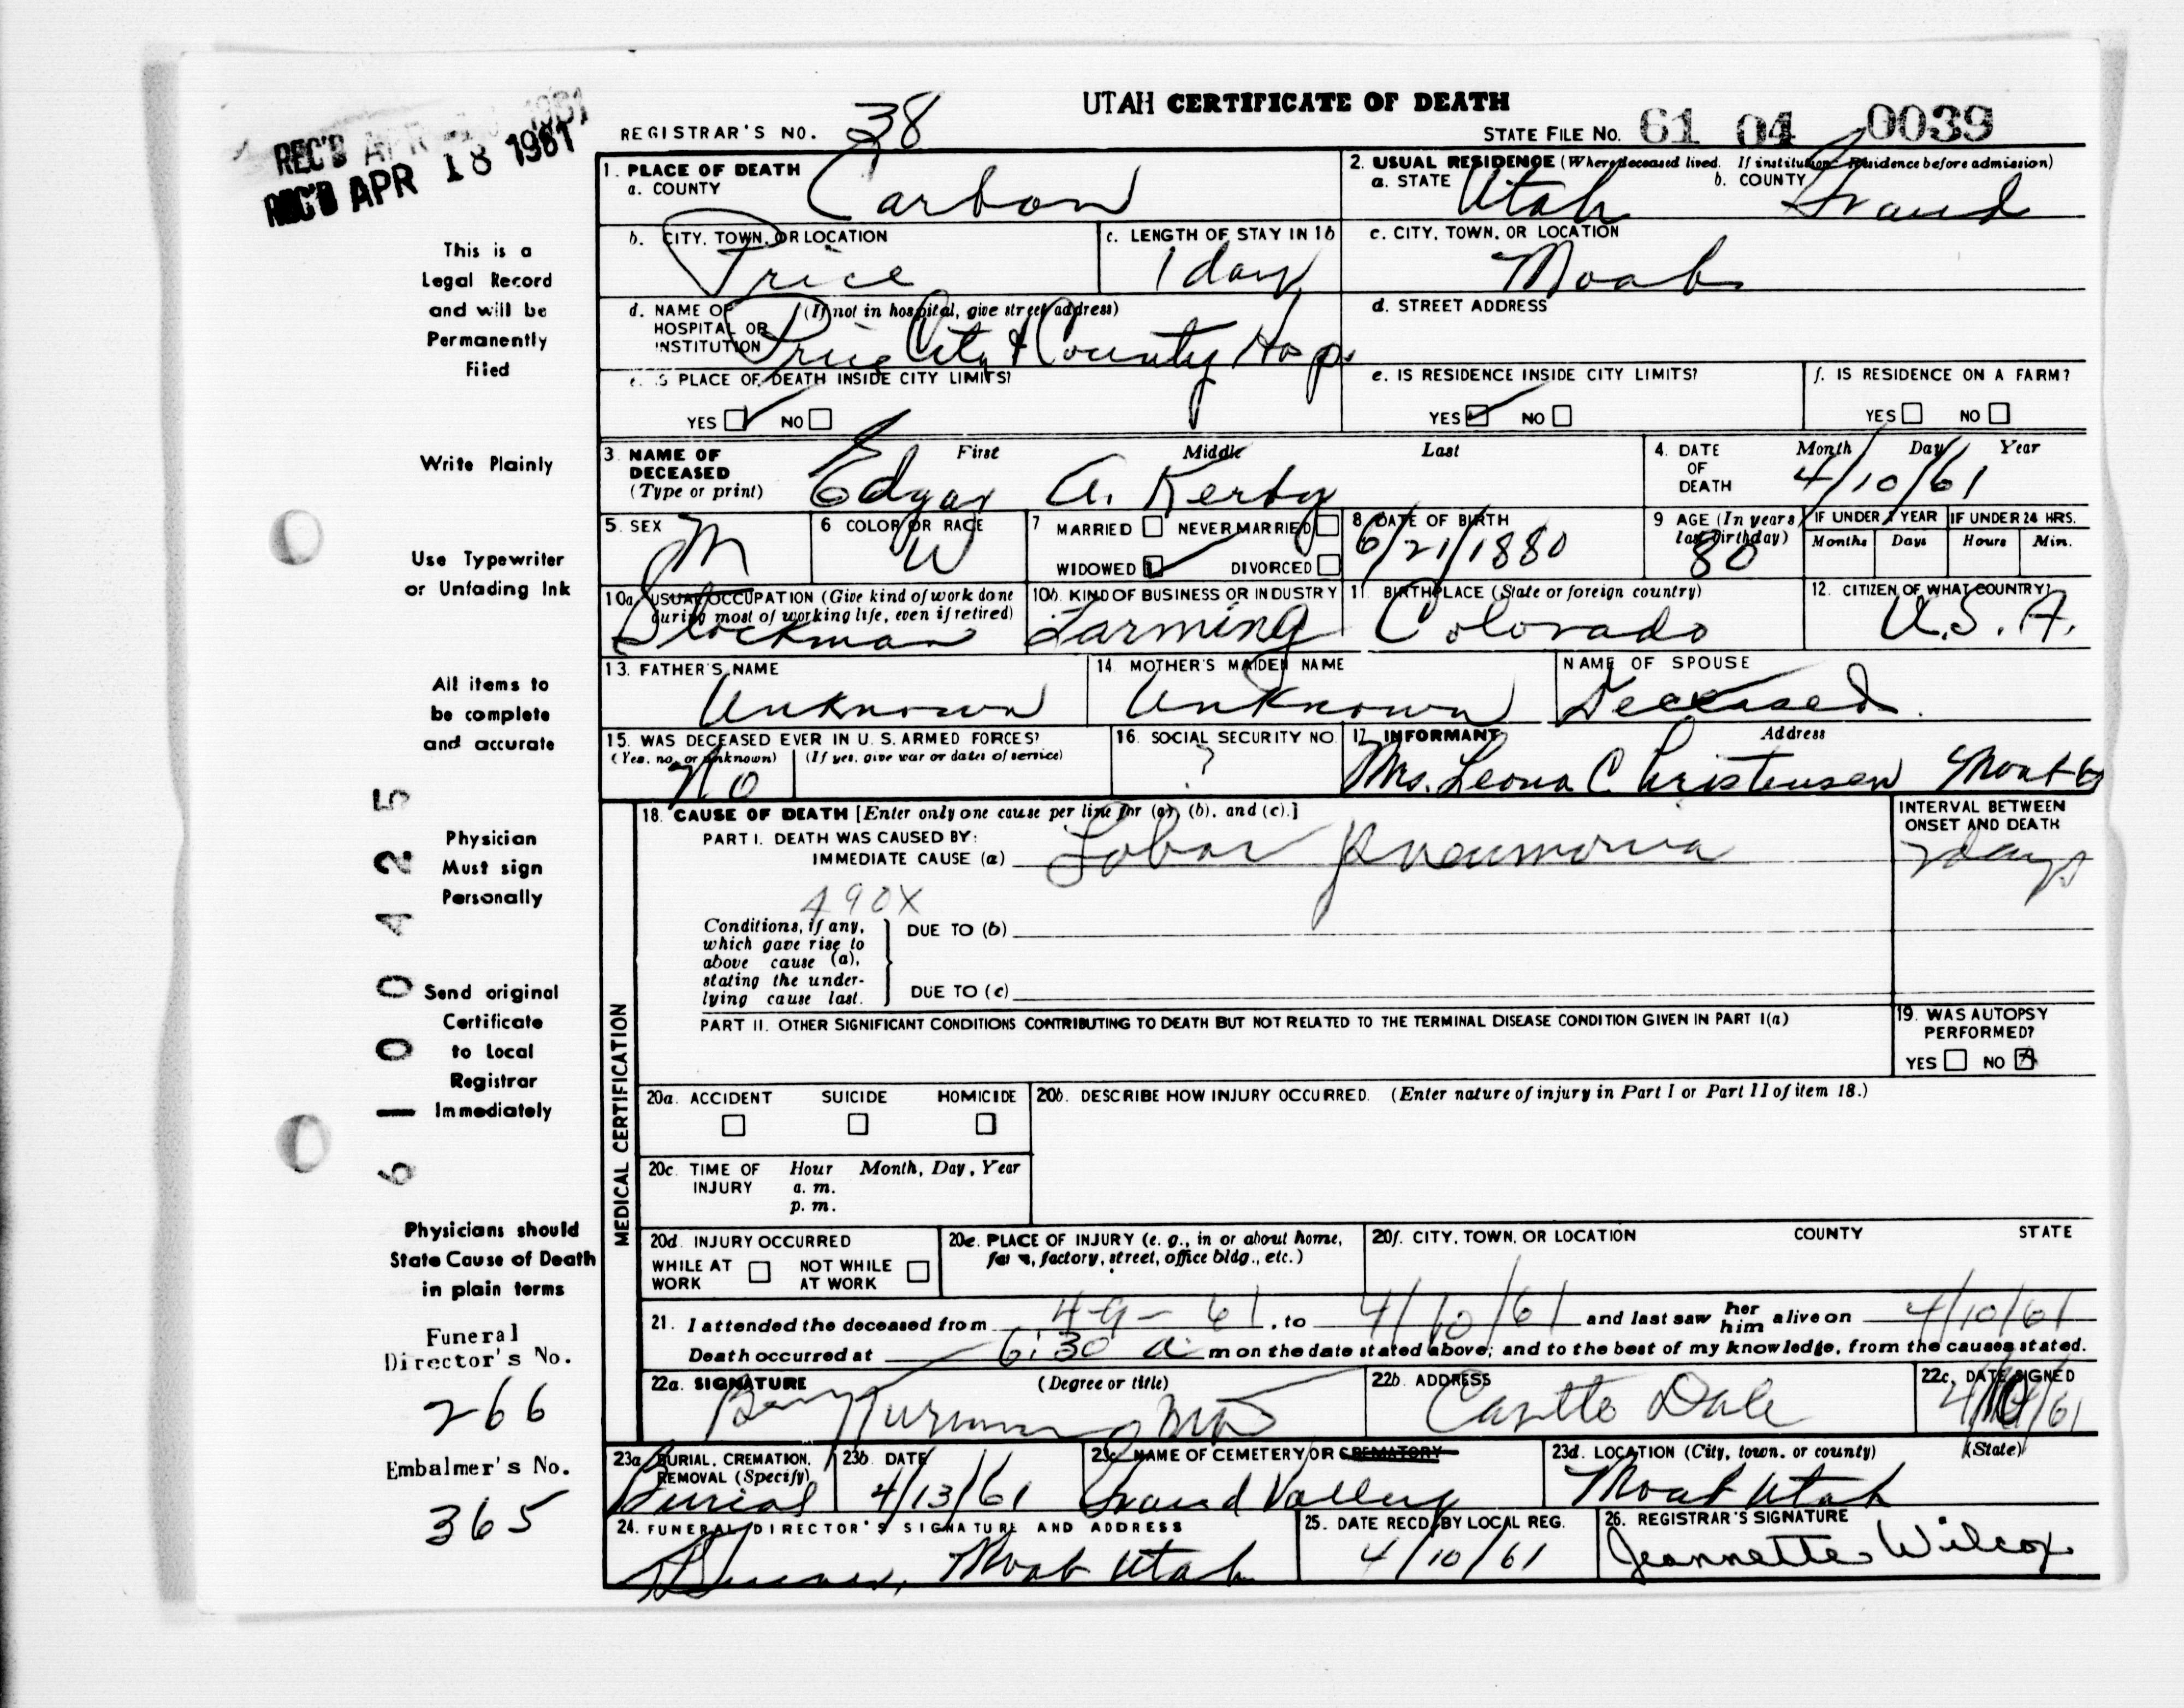 UTAH CERTIFICATE OF DEATH
REC'D APR 1961
REC'D APR 18 1961
REGISTRAR'S NO. 38
STATE FILE NO. 61 04 0039
1. PLACE OF DEATH
a. COUNTY Carbon
2. USUAL RESIDENCE (Where deceased lived. If institution: Residence before admission)
a. STATE Utah b. COUNTY Grand
b. CITY, TOWN, OR LOCATION Price
c. LENGTH OF STAY IN 1b 1 day
c. CITY, TOWN, OR LOCATION Moab
d. NAME OF HOSPITAL OR INSTITUTION (If not in hospital, give street address) Price City & County Hosp.
d. STREET ADDRESS
e. IS PLACE OF DEATH INSIDE CITY LIMITS?
YES NO
e. IS RESIDENCE INSIDE CITY LIMITS?
YES NO
f. IS RESIDENCE ON A FARM?
YES NO
3. NAME OF DECEASED (Type or print) First Middle Last
Edgar A. Kerby
4. DATE OF DEATH Month Day Year
4/10/61
5. SEX M
6 COLOR OR RACE W
7 MARRIED NEVER MARRIED
WIDOWED DIVORCED
8 DATE OF BIRTH 6/21/1880
9 AGE (In years last birthday) 80
IF UNDER 1 YEAR Months Days
IF UNDER 24 HRS. Hours Min.
10a USUAL OCCUPATION (Give kind of work done during most of working life, even if retired) Stockman
10b. KIND OF BUSINESS OR INDUSTRY Farming
11. BIRTHPLACE (State or foreign country) Colorado
12. CITIZEN OF WHAT COUNTRY? U.S.A.
13. FATHER'S NAME Unknown
14. MOTHER'S MAIDEN NAME Unknown
NAME OF SPOUSE Deceased.
15. WAS DECEASED EVER IN U.S. ARMED FORCES?
(Yes, no, or unknown) (If yes, give war or dates of service)
No
16. SOCIAL SECURITY NO. ?
17. INFORMANT Address
Mrs. Leona Christensen Moab
MEDICAL CERTIFICATION
18. CAUSE OF DEATH [Enter only one cause per line for (a), (b), and (c).]
PART I. DEATH WAS CAUSED BY:
IMMEDIATE CAUSE (a) Lobar Pneumonia
INTERVAL BETWEEN ONSET AND DEATH
days
490X
Conditions, if any, which gave rise to above cause (a), stating the underlying cause last.
DUE TO (b)
DUE TO (c)
PART II. OTHER SIGNIFICANT CONDITIONS CONTRIBUTING TO DEATH BUT NOT RELATED TO THE TERMINAL DISEASE CONDITION GIVEN IN PART I(a)
19. WAS AUTOPSY PERFORMED?
YES NO X
20a. ACCIDENT SUICIDE HOMICIDE
20b. DESCRIBE HOW INJURY OCCURRED. (Enter nature of injury in Part I or Part II of item 18.)
20c. TIME OF INJURY Hour Month, Day, Year
a. m.
p. m.
20d. INJURY OCCURRED
WHILE AT WORK NOT WHILE AT WORK
20e. PLACE OF INJURY (e. g., in or about home, farm, factory, street, office bldg., etc.)
20f. CITY, TOWN, OR LOCATION COUNTY STATE
21. I attended the deceased from 4-9-61, to 4/10/61 and last saw her him alive on 4/10/61
Death occurred at 6:30 a m on the date stated above; and to the best of my knowledge, from the causes stated.
22a. SIGNATURE (Degree or title)
MD
22b. ADDRESS Castle Dale
22c. DATE SIGNED 4/10/61
23a BURIAL, CREMATION, REMOVAL (Specify) Burial
23b DATE 4/13/61
23c NAME OF CEMETERY OR CREMATORY Grand Valley
23d. LOCATION (City, town, or county) (State)
Moab Utah
24. FUNERAL DIRECTOR'S SIGNATURE AND ADDRESS
Moab Utah
25. DATE RECD. BY LOCAL REG. 4/10/61
26. REGISTRAR'S SIGNATURE
Jeannette Wilcox
This is a
Legal Record
and will be
Permanently
Filed
Write Plainly
Use Typewriter
or Unfading Ink
All items to
be complete
and accurate
Physician
Must sign
Personally
Send original
Certificate
to Local
Registrar
Immediately
Physicians should
State Cause of Death
in plain terms
Funeral
Director's No.
266
Embalmer's No.
365
61 00425